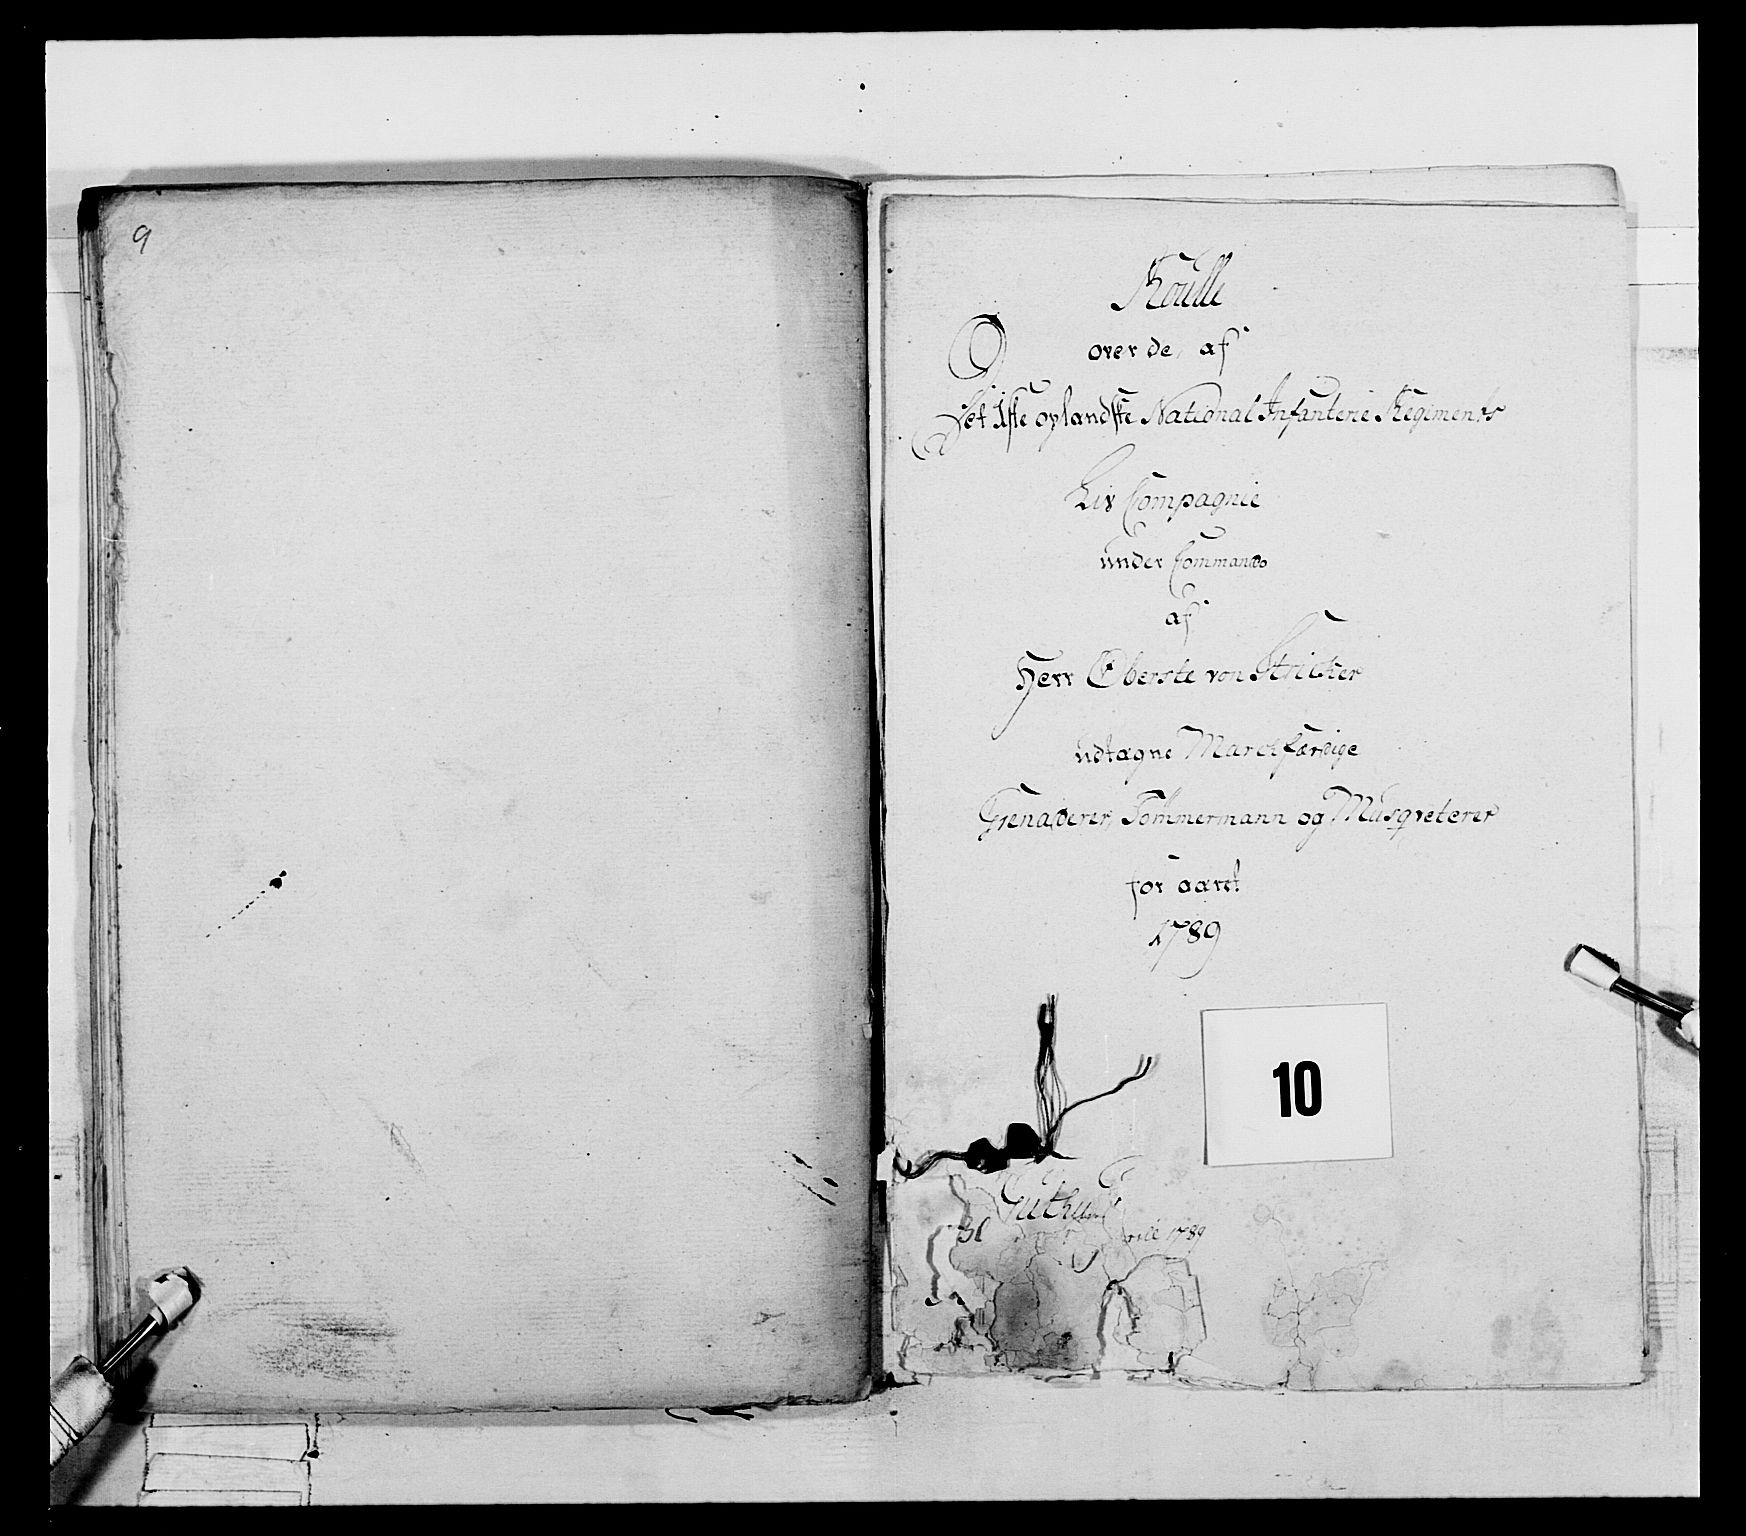 9
Roulle
over de af
Det 1ste oplandske National Infanterie Regiments
Liv Compagnie
under Commando
af
Herr Oberste von Stricker
udtagne Marchfærdige
Grenaderer, Tømmermann og Musqveterer
for aaret
1789
10
1789